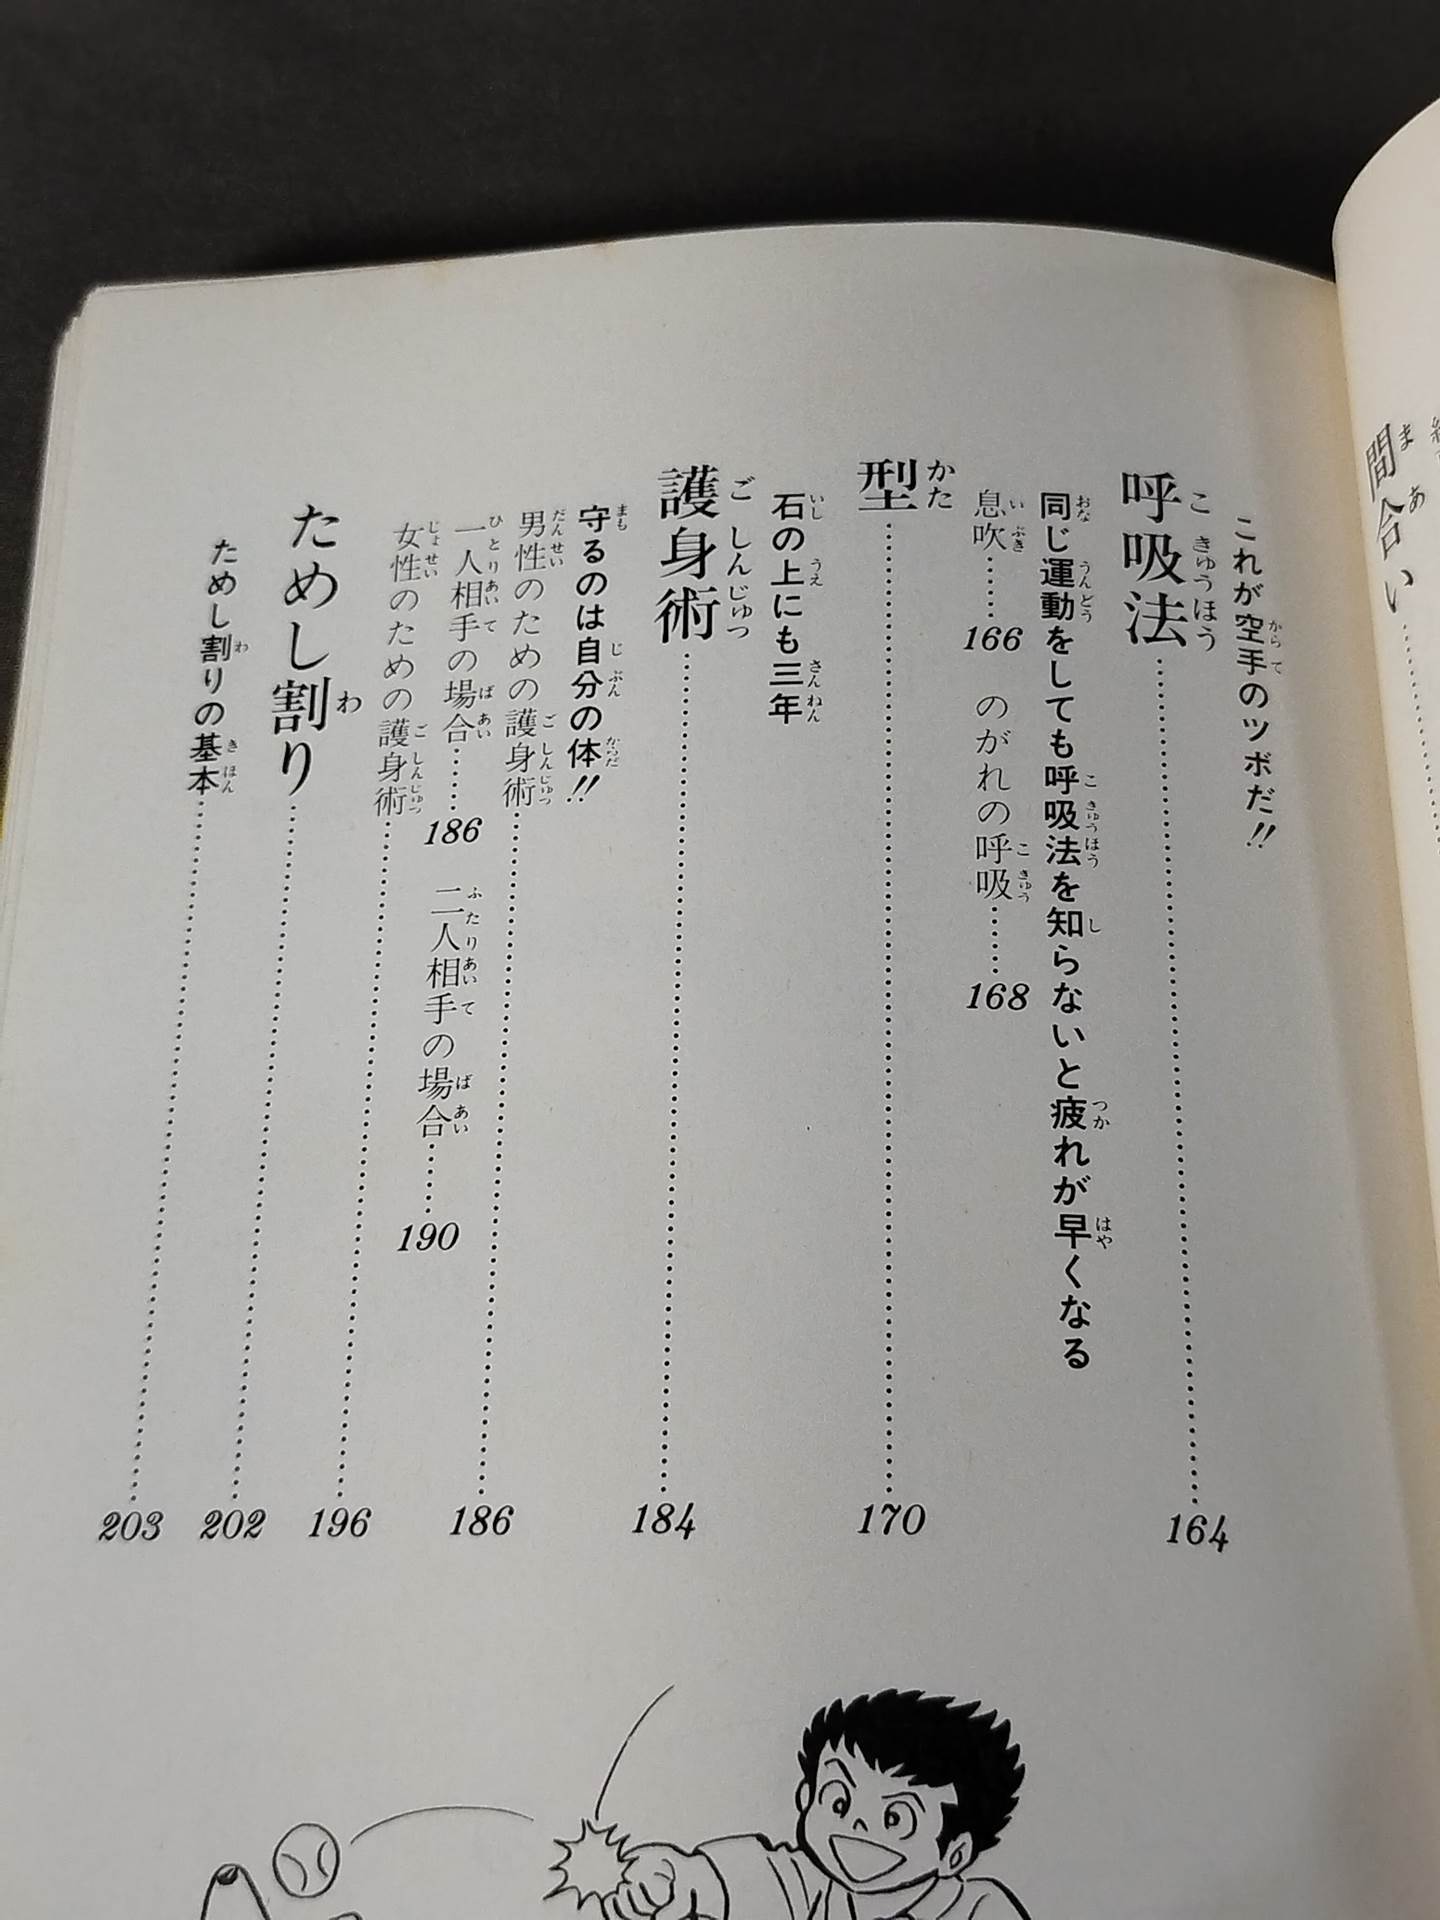 間合い
これが空手のツボだ!!
呼吸法 164
同じ運動をしても呼吸法を知らないと疲れが早くなる
息吹 166 のがれの呼吸 168
型 170
石の上にも三年
護身術 184
守るのは自分の体!!
男性のための護身術 186
一人相手の場合 186 二人相手の場合 190
女性のための護身術 196
ためし割り 202
ためし割りの基本 203